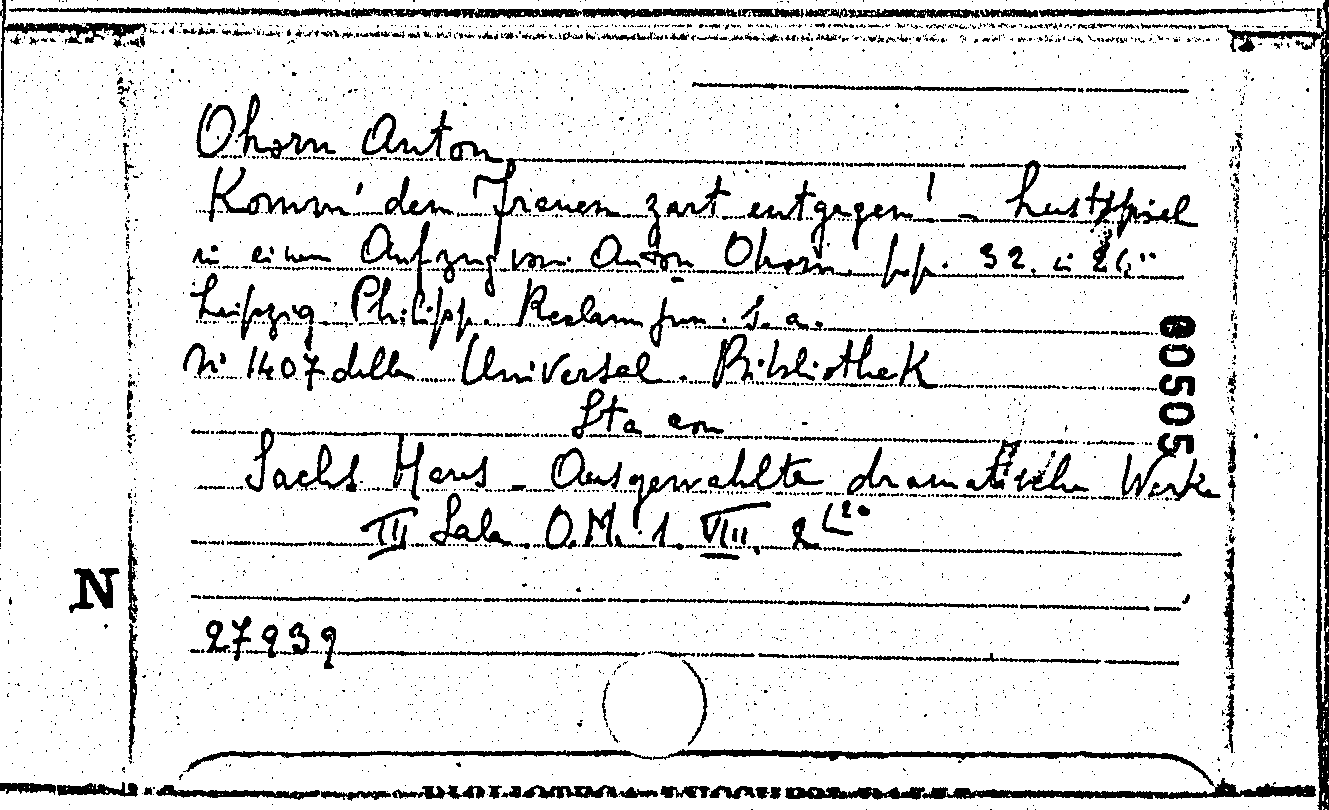 Ohorn Anton
Komm' den Frauen zart entgegen! - Lustspiel
in einem Aufzug von Anton Ohorn. pp. 32. in
Leipzig. Philipp. Reclam jun. s. a.
N. 1407 della Universal. Bibliothek
Sta con
Sachs Hans - Ausgewahlte dramatische Werke
III Sala. O.M. 1. VIII. 2
27939
80505
N